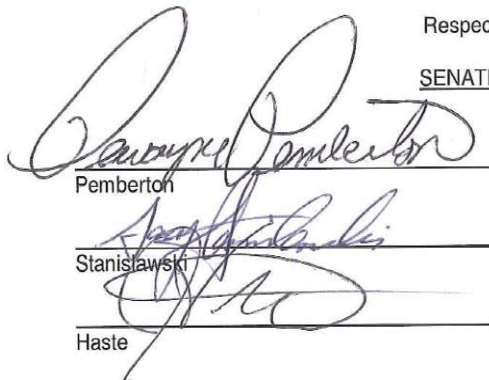 Respec
SENATE
Dewayne Pemberton
Pemberton
Stanislawski
Haste